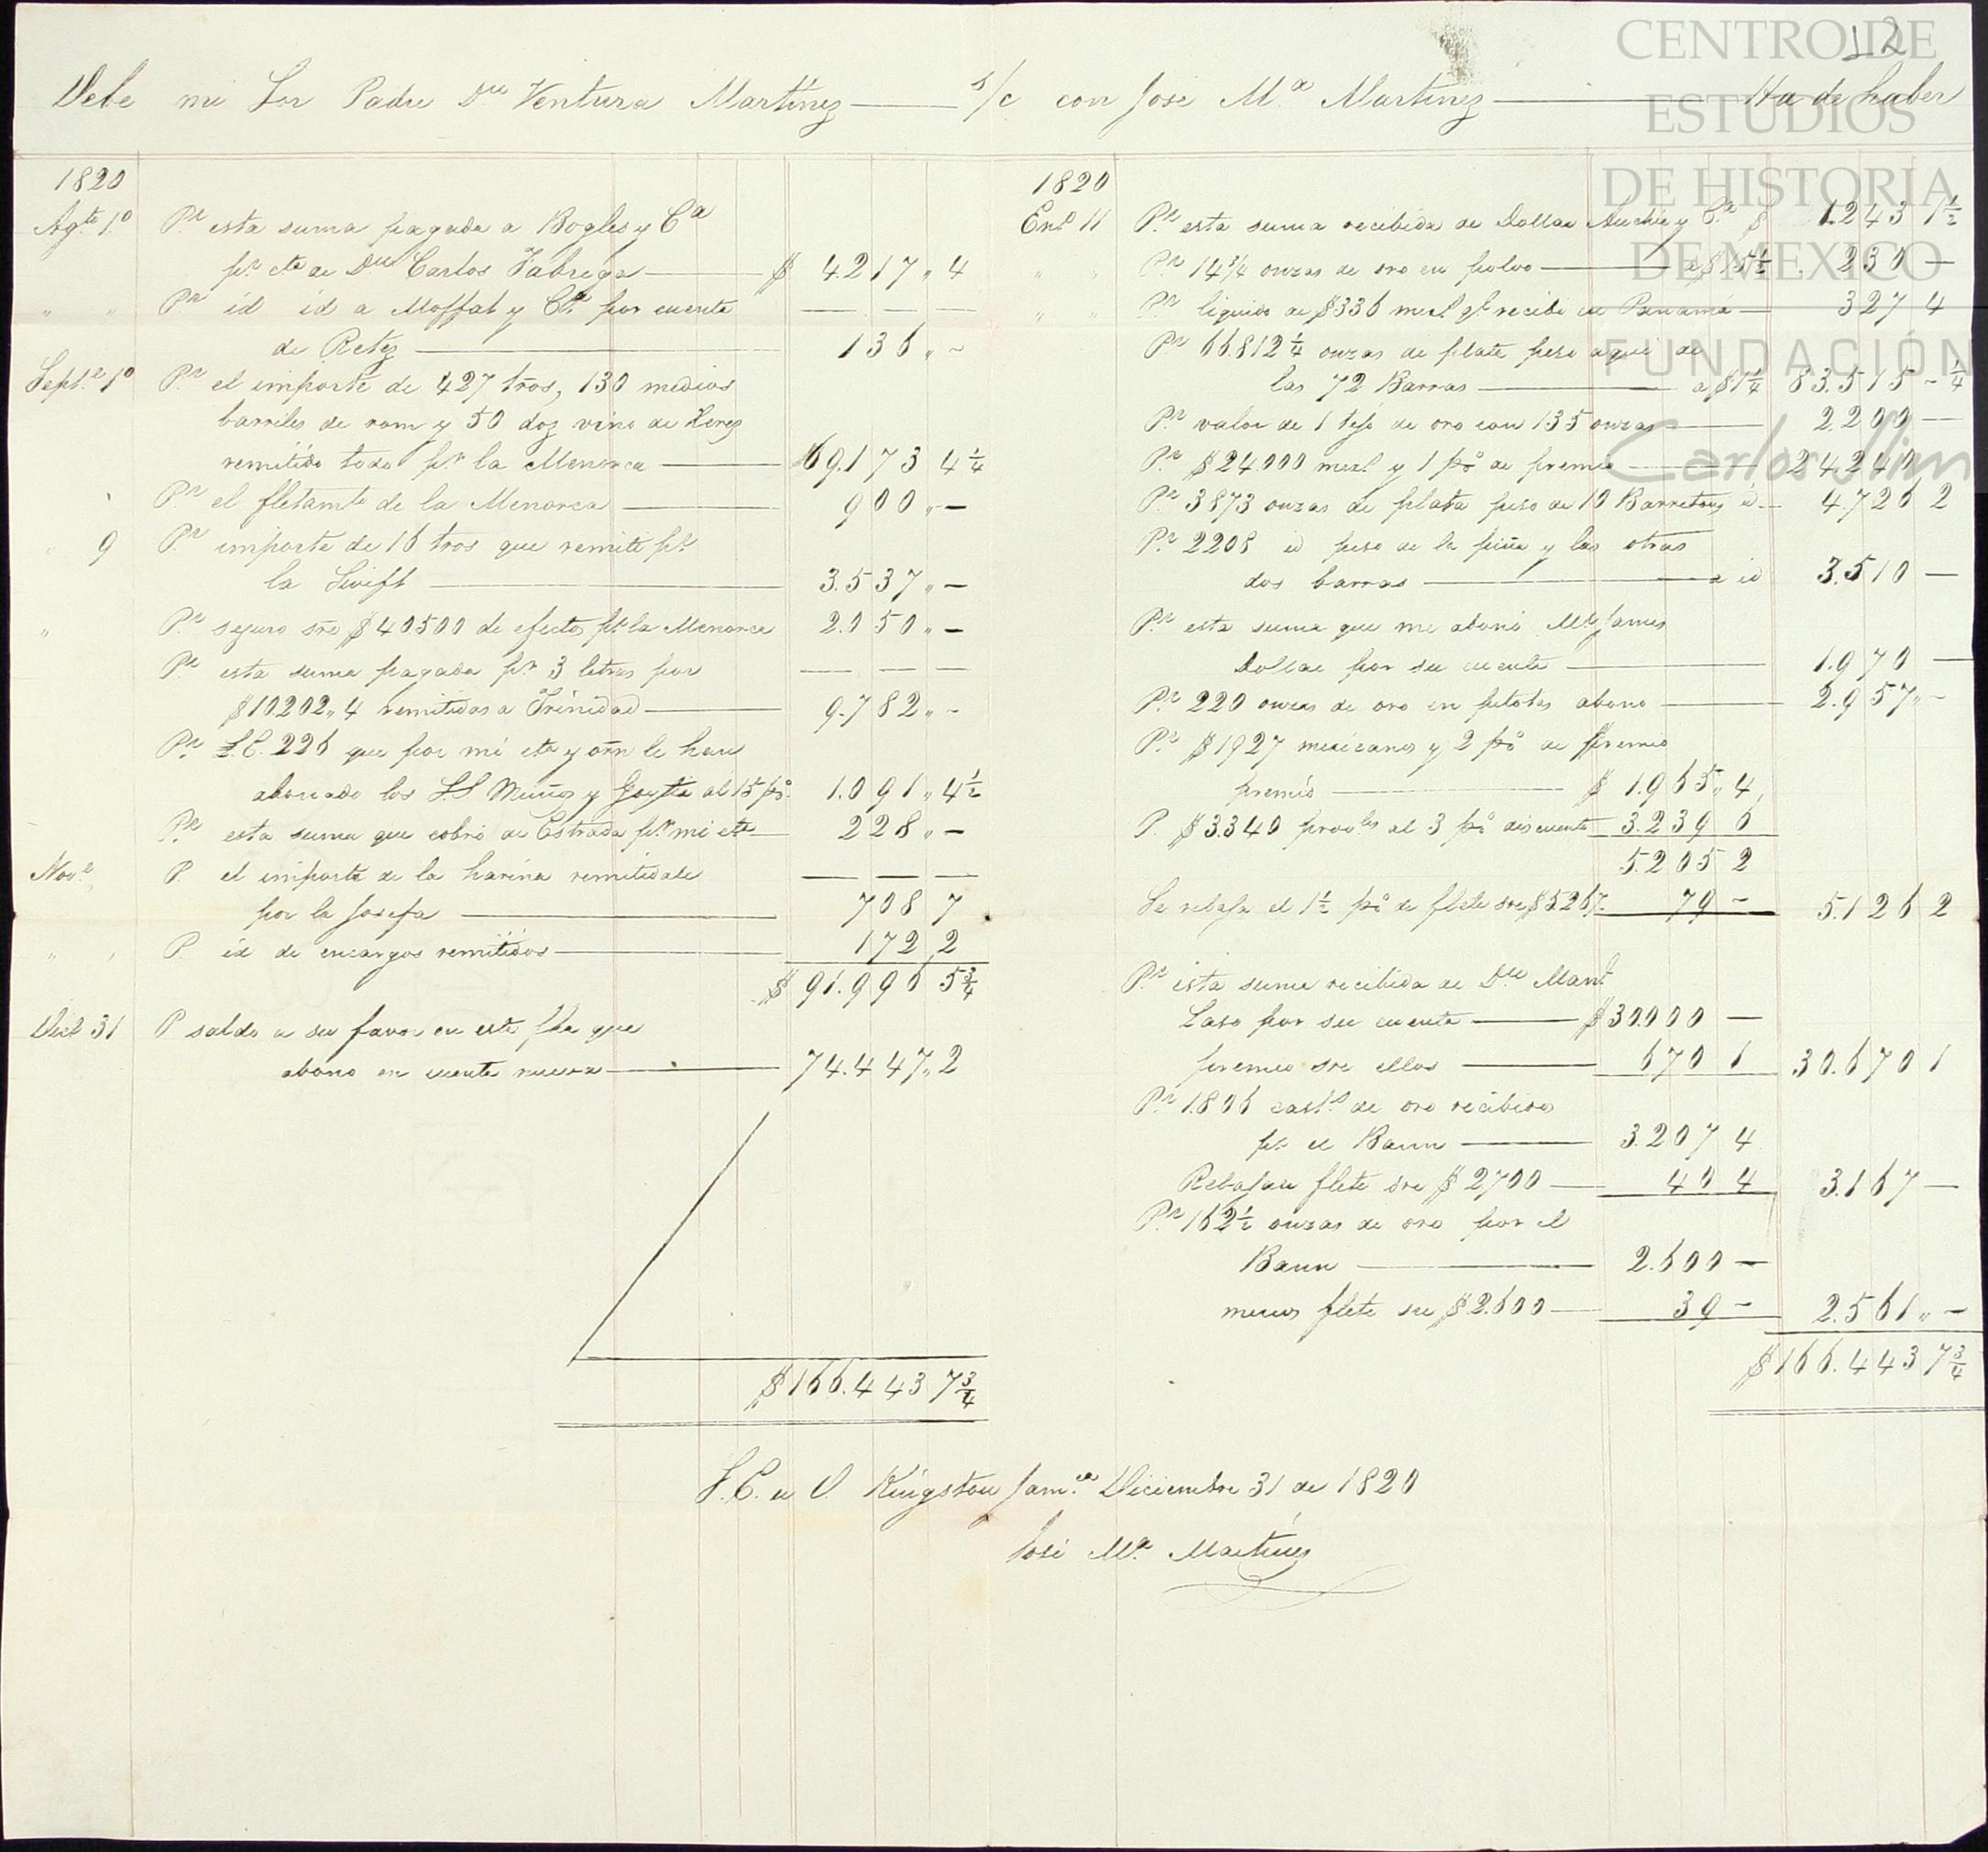 12
Debe mi Sor Padre Dn Ventura Martinez —— s/c con José Ma Martinez —— Ha de haber
1820
Agto 1o Pr esta suma pagada a Bogles y Ca
pr cta de Dn Carlos Fabrega —— $ 4.217 „ 4
„ „ Pr id id a Moffat y Ca por cuenta — — —
de Retez —— 136 „ -
Septe 1o Pr el importe de 427 tros, 130 medios
barriles de rom y 50 doz vino de Xerez
remitido todo pr la Menorca —— 69.173 4 1/4
Pr el fletamto de la Menorca —— 900 „ —
„ 9 Pr importe de 16 tros que remiti pr
la Swift —— 3.537 „ —
„ Pr seguro sre $40500 de efectos pr la Menorca 2.050 „ —
Pr esta suma pagada pr 3 letras por — — —
$10202„4 remitidas a Trinidad —— 9.782 „ -
Pr £C. 226 que por mi cta y orn le han
abonado los S.S Muñoz y Goytia al 15 po/o 1.091 „ 4 1/2
Pr esta suma que cobró de Estrada pr mi cta — 228 „ —
Nove P. el importe de la harina remitidale — — —
por la Josefa —— 708 7
„ „ P. id de encargos remitidos —— 172 2
$ 91.996 5 3/4
Dice 31 P saldo a su favor en esta fha que
abono en cuenta nueva —— 74.447 „ 2
$ 166.443 7 3/4
1820
Eno 11 Pr esta suma recibida de Dollar Auchie y Ca $ 1.243 1 1/2
„ „ Pr 14 3/4 onzas de oro en polvo —— a $15 1/2 230 —
„ „ Pr liquido de $336 mexs qe recibi en Panamá — 327 4
Pr 66.812 1/4 onzas de plata peso aqui de
las 72 Barras —— a $1 1/4 83.515 - 1/4
Pr valor de 1 tejo de oro con 135 onzas —— 2.200 —
Pr $24.000 mexs y 1 po/o de premio —— 24.240
Pr 3873 onzas de plata peso de 10 Barretones id — 4.726 2
Pr 2208 id peso de la piña y las otras
dos barras —— a id 3.510 —
Pr esta suma que me abonó Mr James
Dollar por su cuenta —— 1.970 —
Pr 220 onzas de oro en pelotas abono —— 2.957 „ -
Pr $1927 mexicanos y 2 po/o de premio
premio —— $ 1.965 „ 4
P. $3.340 provles al 3 po/o discuento 3.239 6
5.205 2
Se rebaja el 1 1/2 po/o de flete sre $5267 79 - 5.126 2
Pr esta suma recibida de Dn Manl
Laso por su cuenta —— $30.000 —
premio sre ellos —— 670 1 30.670 1
Pr 1.806 casts de oro recibidos
pr el Bann —— 3.207 4
Rebajan flete sre $2700 —— 40 4 3.167 —
Pr 162 1/2 onzas de oro por el
Bann —— 2.600 —
menos flete sre $2.600 —— 39 - 2.561 „ -
$ 166.443 7 3/4
S.E. u O. Kingston Jamca Diciembre 31 de 1820
José Ma Martinez
CENTRO DE
ESTUDIOS
DE HISTORIA
DE MEXICO
FUNDACIÓN
Carlos Slim